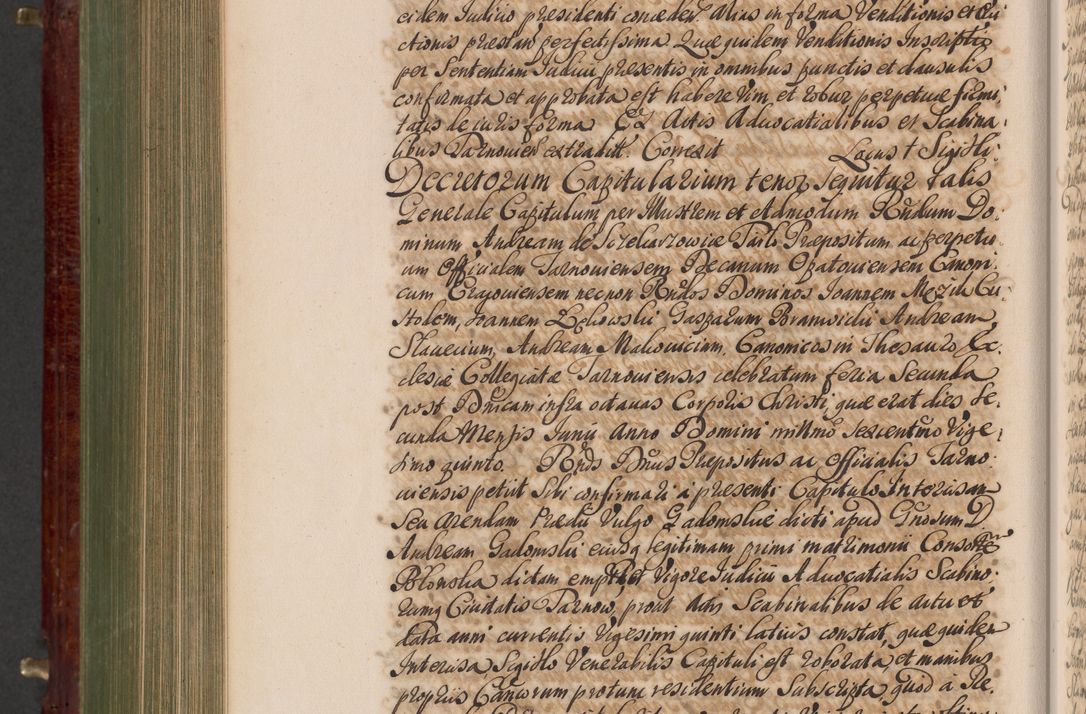 eidem Judicio presidenti conceden. Alias in forma Venditionis et Eui
ctionis præstan. perfectissima. Quæ quidem Venditionis Inscriptio
per Sententiam Judicii præsentis in omnibus punctis et clausulis
confirmata et approbata est habere vim et robur perpetuæ firmi
tatis de iuris forma. Ex Actis Aduocatialibus et Scabina-
libus Tarnouien extradit. Correxit Locus † Sigilli
Decretorum Capitularium tenor sequitur talis
Generale Capitulum per Illustrem et Admodum Rndum Do-
minum Andream de Szeliarzowice Tarlo Præpositum ac perpetu-
um Officialem Tarnouiensem Decanum Opatouiensem Canoni-
cum Cracouiensem necnon Rndos Dominos Joannem Mezik Cu-
stodem, Joannem Zykowski Gasparum Branwicki Andream
Stauecium, Andream Makouicium, Canonicos in Thesauro Ec-
clesiæ Collegiatæ Tarnouiensis celebratum feria Secunda
post Dnicam infra octauas Corporis Christi, quæ erat dies Se-
cunda Mensis Junii Anno Domini millmo sexcentmo Vige-
simo quinto. Rnds Dnus Præpositus ac Officialis Tarno-
uiensis petiit sibi confirmari a præsenti Capitulo Intercisam
Seu arendam Prædii Vulgo Gadomskie dicti apud Gnosum D.
Andream Gadomski eiusq legitimam primi matrimonii Consortem
Rokowska dictam emptæ et Vigore Judicii Aduocatialis Scabino-
rumq Ciuitatis Tarnow, prout Actis Scabinalibus de actu et
data anni currentis Vigesimi quinti latius constat, quæ quidem
Intercisa, Sigillo Venerabilis Capituli est roborata et manibus
propriis Cancorum protunc residentium Subscripta, quod a Re-